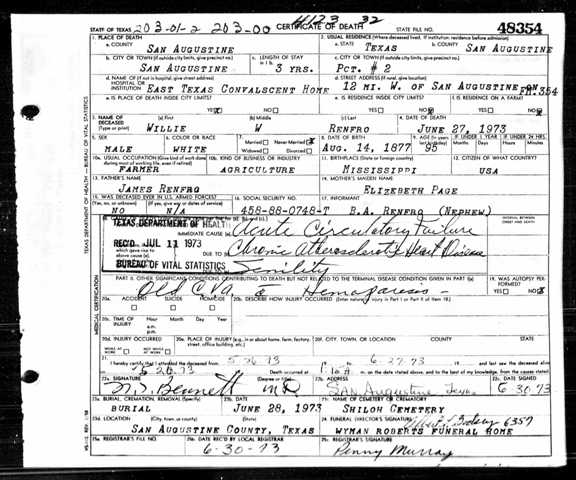 203-01-2 203-00 #1123 32
STATE OF TEXAS CERTIFICATE OF DEATH STATE FILE NO. 48354
1. PLACE OF DEATH 2. USUAL RESIDENCE (Where deceased lived. If institution: residence before admission)
a. COUNTY SAN AUGUSTINE a. STATE TEXAS b. COUNTY SAN AUGUSTINE
b. CITY OR TOWN (If outside city limits, give precinct no.) c. LENGTH OF STAY c. CITY OR TOWN (If outside city limits, give precinct no.)
SAN AUGUSTINE 3 YRS. PCT. # 2
d. NAME OF (If not in hospital, give street address) HOSPITAL OR INSTITUTION d. STREET ADDRESS (If rural, give location)
EAST TEXAS CONVALSCENT HOME 12 MI. W. OF SAN AUGUSTINE ON FM 354
e. IS PLACE OF DEATH INSIDE CITY LIMITS? YES NO e. IS RESIDENCE INSIDE CITY LIMITS? YES NO f. IS RESIDENCE ON A FARM? YES NO
3. NAME OF DECEASED (Type or print) (a) First (b) Middle (c) Last 4. DATE OF DEATH
WILLIE W RENFRO JUNE 27, 1973
5. SEX 6. COLOR OR RACE 7. Married Never Married Widowed Divorced 8. DATE OF BIRTH 9. AGE IF UNDER 1 YEAR IF UNDER 24 HRS.
MALE WHITE AUG. 14, 1877 95 Months Days Hours Minutes
10a. USUAL OCCUPATION 10b. KIND OF BUSINESS OR INDUSTRY 11. BIRTHPLACE (State or foreign country) 12. CITIZEN OF WHAT COUNTRY?
FARMER AGRICULTURE MISSISSIPPI USA
13. FATHER'S NAME 14. MOTHER'S MAIDEN NAME
JAMES RENFRO ELIZEBETH PAGE
15. WAS DECEASED EVER IN U.S. ARMED FORCES? 16. SOCIAL SECURITY NO.
NO N/A 458-88-0748-T B.A. RENFRO (NEPHEW)
TEXAS DEPARTMENT OF HEALTH IMMEDIATE CAUSE (a) Acute Circulatory Failure
REC'D JUL 11 1973 Chronic Atherosclerotic Heart Disease
BUREAU OF VITAL STATISTICS Senility
PART II. OTHER SIGNIFICANT CONDITIONS CONTRIBUTING TO DEATH BUT NOT RELATED TO THE TERMINAL DISEASE CONDITION GIVEN IN PART I(a) 19. WAS AUTOPSY PERFORMED?
Old CVA c Hemaparesis YES NO
20a. ACCIDENT SUICIDE HOMICIDE 20b. DESCRIBE HOW INJURY OCCURRED (Enter nature of injury in Part I or Part II of item 18.)
20c. TIME OF INJURY Hour Month Day Year a.m. p.m.
20d. INJURY OCCURRED WHILE AT WORK NOT WHILE AT WORK 20e. PLACE OF INJURY (e.g. in or about home, farm, factory, street, office building, etc.) 20f. CITY, TOWN, OR LOCATION COUNTY STATE
21. I hereby certify that I attended the deceased from 5-26-73 to 6-27-73 and last saw the deceased alive
on 5 26 73 Death occurred at m. on the date stated above, and to the best of my knowledge, from the causes stated.
22a. SIGNATURE (Degree or title) 22b. ADDRESS 22c. DATE SIGNED
Bennett MD SAN Augustine Texas 6-30-73
23a. BURIAL, CREMATION, REMOVAL (Specify) 23b. DATE 23c. NAME OF CEMETERY OR CREMATORY
BURIAL JUNE 28, 1973 SHILOH CEMETERY
23d. LOCATION (City, town, or county) (State) 24. FUNERAL DIRECTOR'S SIGNATURE 6357
SAN AUGUSTINE COUNTY, TEXAS WYMAN ROBERTS FUNERAL HOME
25a. REGISTRAR'S FILE NO. 25b. DATE REC'D BY LOCAL REGISTRAR 25c. REGISTRAR'S SIGNATURE
6-30-73 Penny Murray
TEXAS DEPARTMENT OF HEALTH - BUREAU OF VITAL STATISTICS
MEDICAL CERTIFICATION